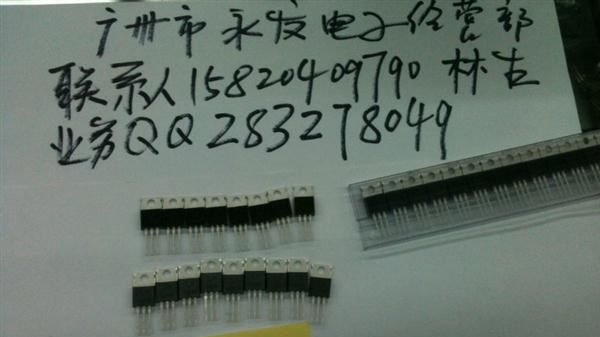 广州市永发电子经营部
联系人15820409790 林生
业务QQ283278049